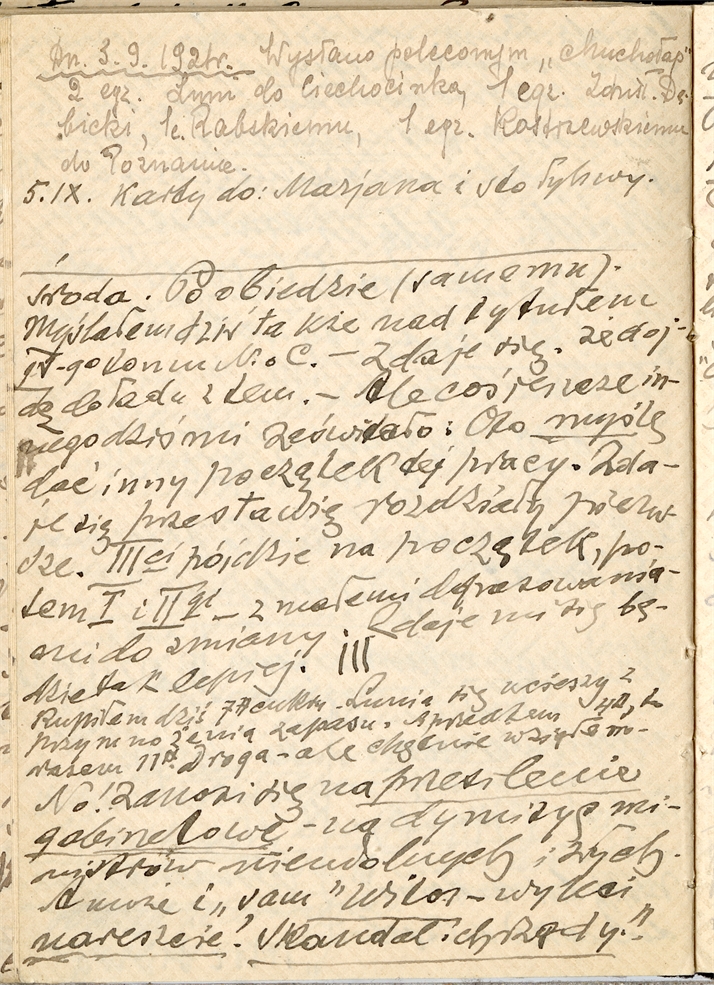 Dn. 3. 9. 1921r. Wysłano poleconym „Chuchołap"
2 egz. Lum do Ciechocinka, 1 egz. Zdzisł. Dę-
bicki, 1 e. Rabskiemu, 1 egz. Kostrzewskiemu
do Poznania.
5. IX. Karty do: Marjana i
środa. Po obiedzie (samemu).
Myślałem dziś także nad tytułem
N. o C. – Zdaje się, że doj-
dę do ładu z tem. – Ale coś jeszcze in-
nego dziś mi zaświtało: Oto myślę
dać inny początek tej pracy. Zda-
je się przestawię rozdziały pierw-
sze. III ci pójdzie na początek, po-
tem I i II gi – z małemi dopasowania-
mi do zmiany. Zdaje mi się bę-
dzie tak lepiej. III
Kupiłem dziś 7 ℔ cukru. Lunia się ucieszy z
przymnożenia zapasu. Sprzedałem 4 ℔, to
razem 11 ℔. Droga – ale chętnie wziąłem.
No! Zanosi się na przesilenie
gabinetowe – na dymisyę mi-
nistrów nieudolnych i złych.
A może i „sam" Witos – wyleci
nareszcie! Skandal: ich rządy."